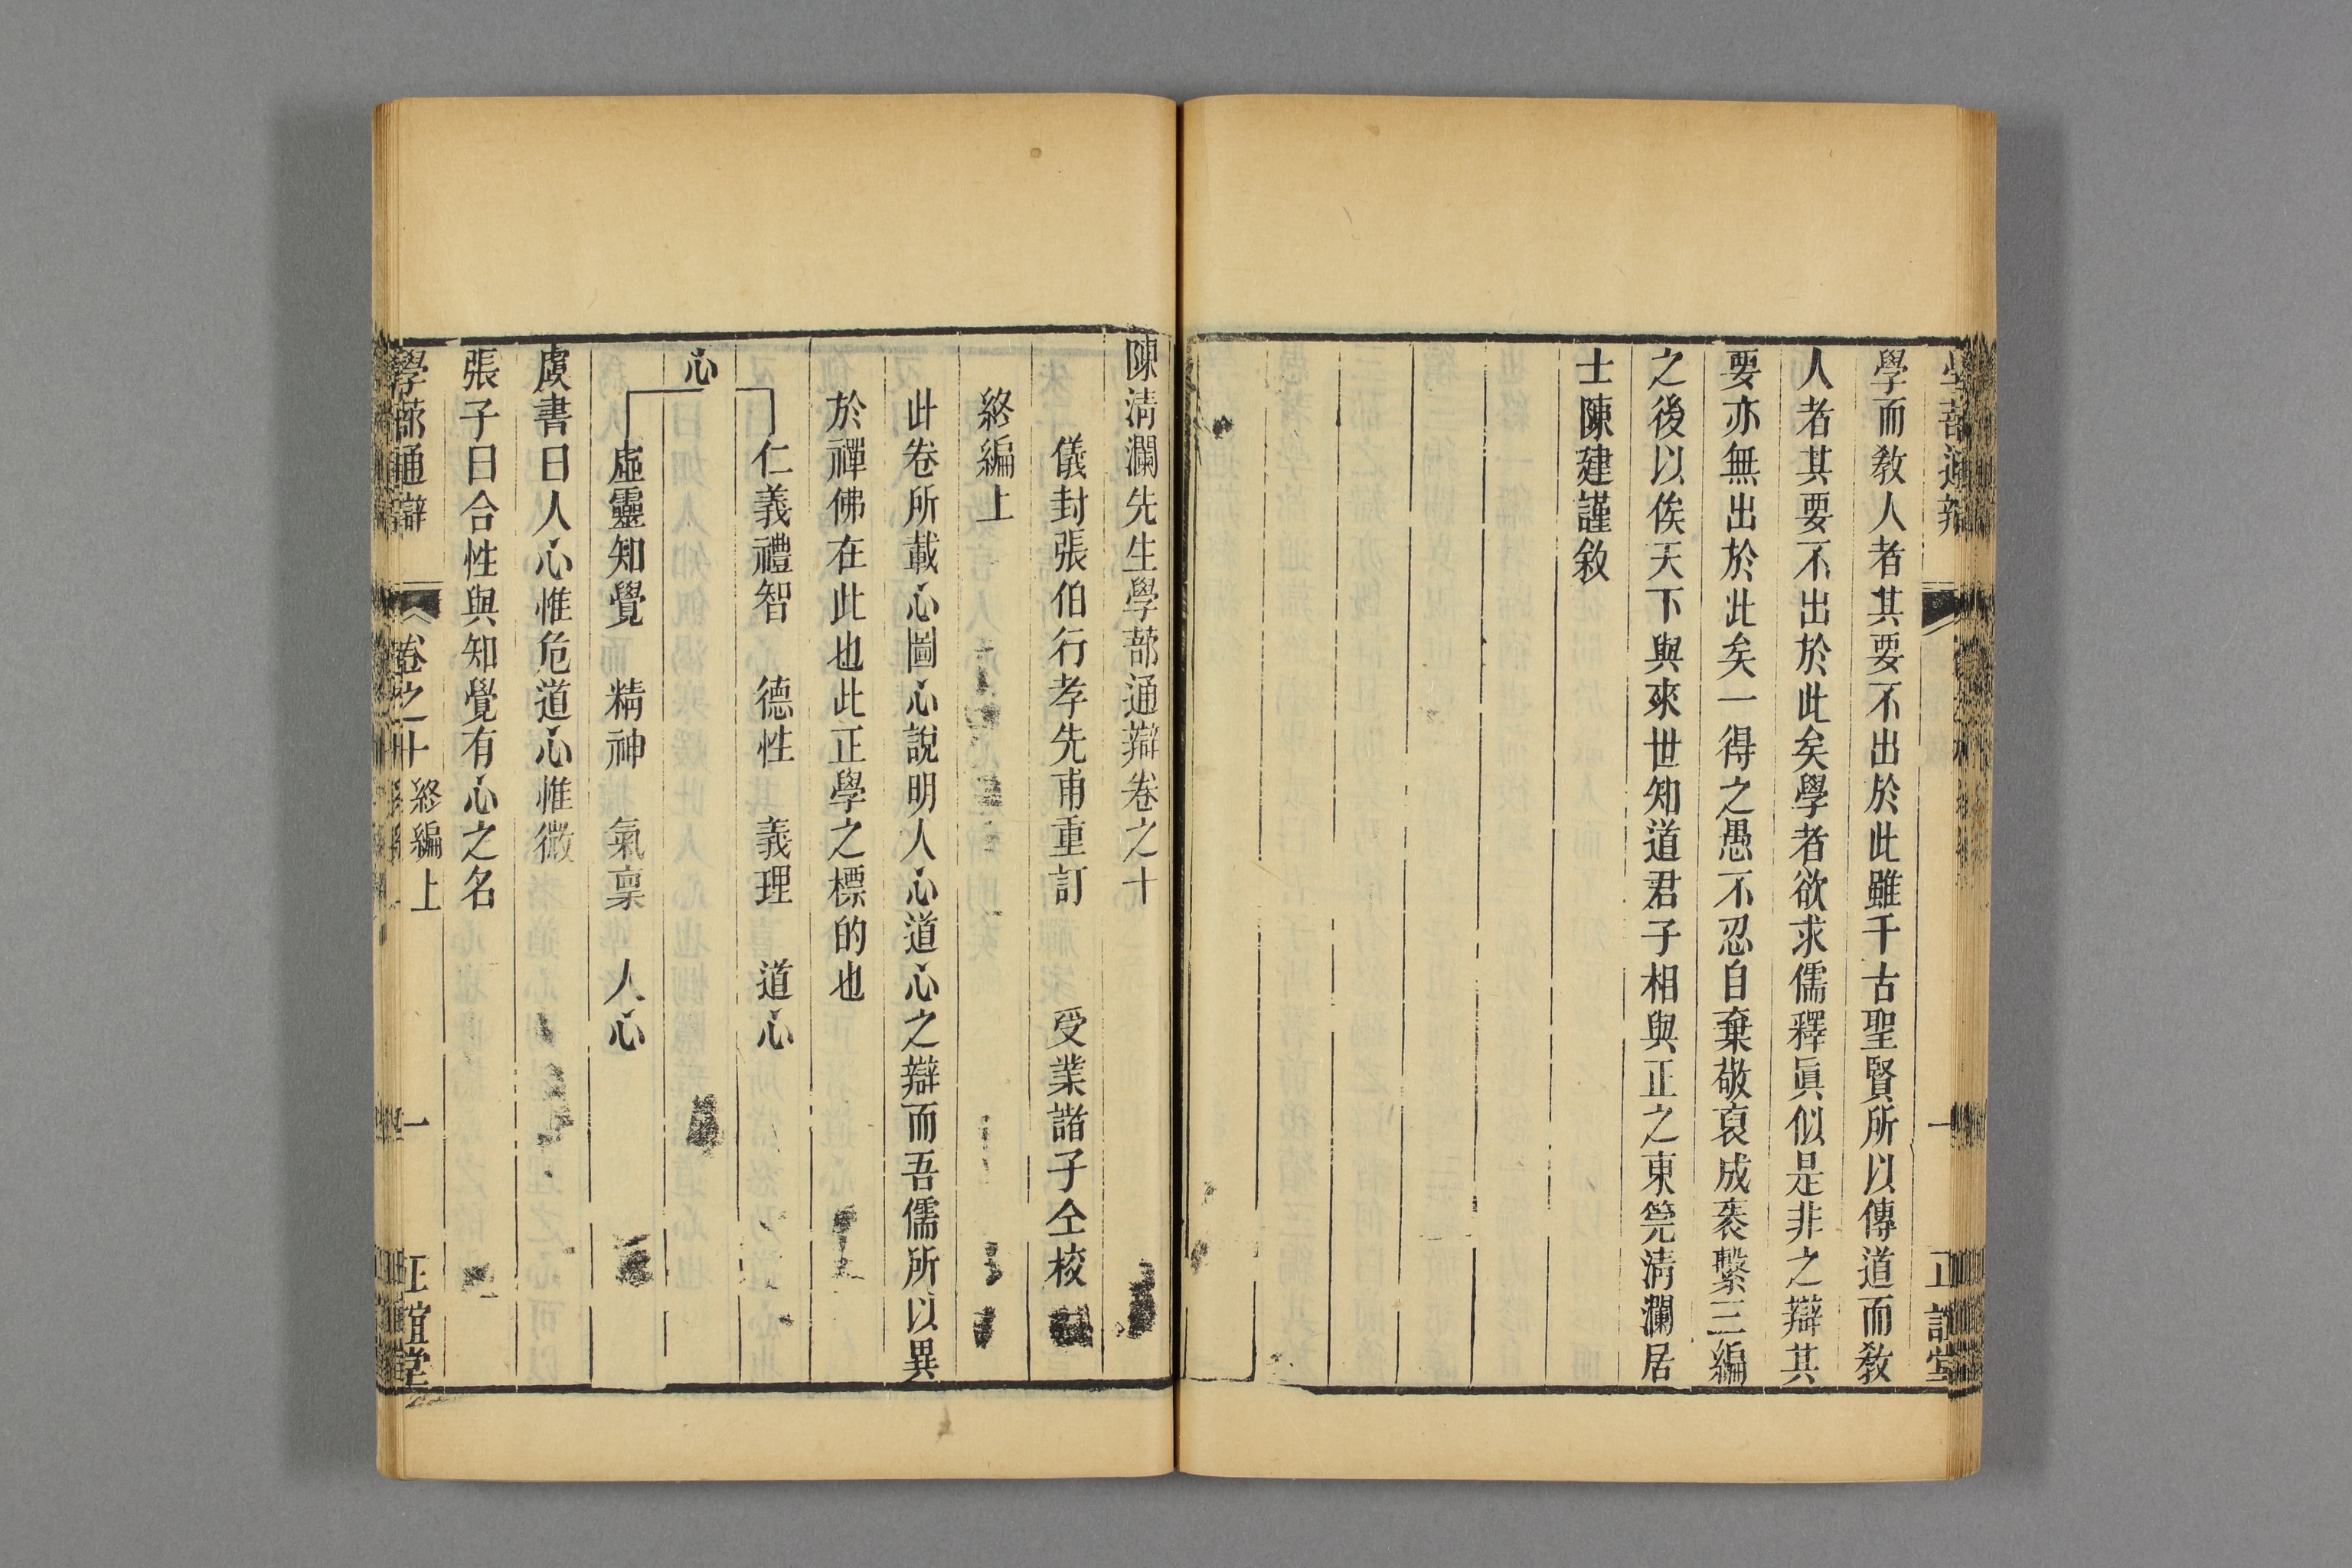 學蔀通辯
一
正誼堂
學而敎人者其要不出於此雖千古聖賢所以傳道而敎
人者其要不出於此矣學者欲求儒釋眞似是非之辯其
要亦無出於此矣一得之愚不忍自棄敬裒成袠繫三編
之後以俟天下與來世知道君子相與正之東筦淸瀾居
士陳建謹敘
陳淸瀾先生學蔀通辯卷之十
儀封張伯行孝先甫重訂　受業諸子仝校
終編上
此卷所載心圖心說明人心道心之辯而吾儒所以異
於禪佛在此也此正學之標的也
仁義禮智　德性　義理　道心
心
虛靈知覺　精神　氣稟　人心
虞書曰人心惟危道心惟微
張子曰合性與知覺有心之名
學蔀通辯
卷之十　終編上
一
正誼堂